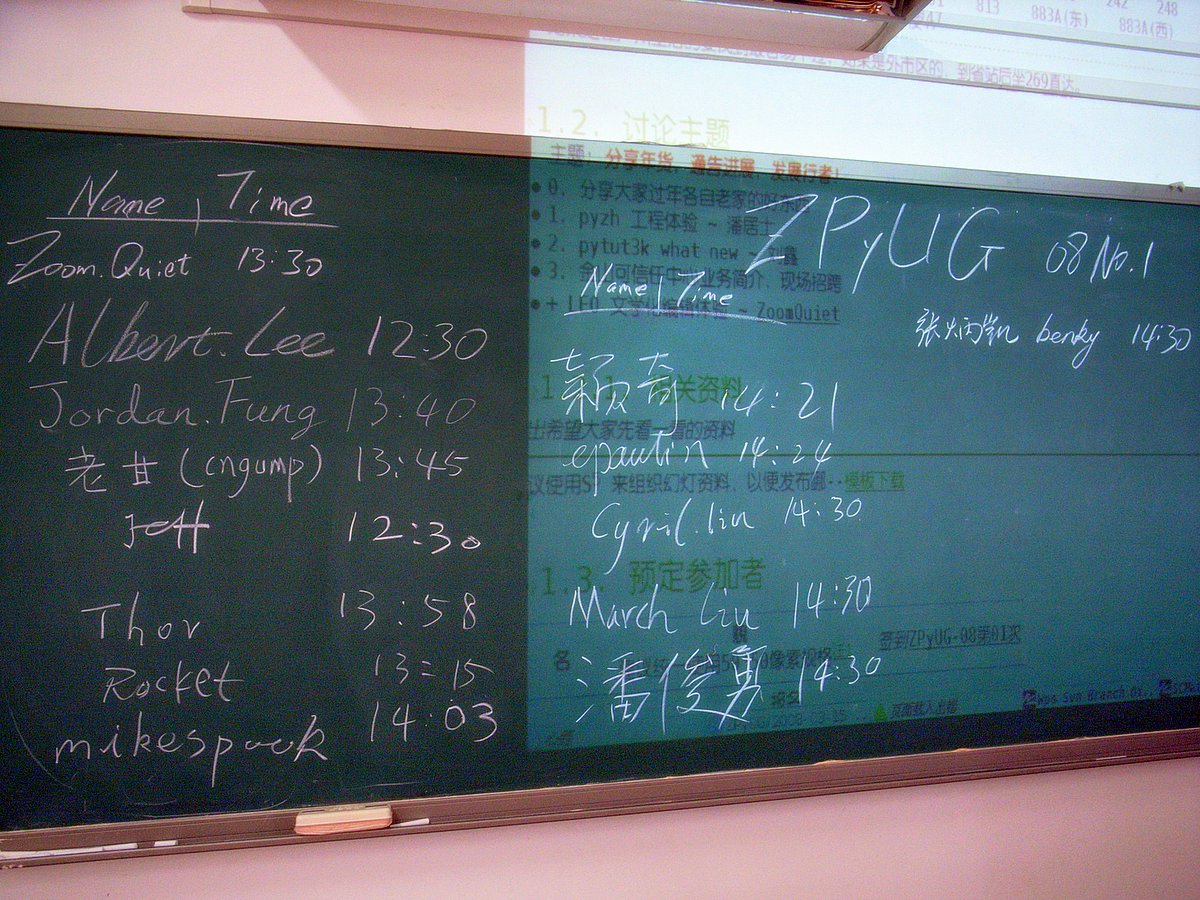 813
242
248
883A(东)
883A(西)
如果是外市区的，到省站后坐269直达。
1.2. 讨论主题
主题: 分享年货，通告进展，发展行者!
0. 分享大家过年各自老家的
1. pyzh 工程体验 ~ 潘居士
2. pytut3k what new ~
3. 可信任 业务简介、现场招聘
~ ZoomQuiet
相关资料
出希望大家先看一看的资料
议使用S5 来组织幻灯资料、以便发布 模板下载
1.3. 预定参加者
签到ZPyUG-08第01次
名
报名
Name Time
Zoom.Quiet 13:30
Albert.Lee 12:30
Jordan.Fung 13:40
老甘(cngump) 13:45
Jeff 12:30
Thor 13:58
Rocket 13=15
mikespook 14:03
ZPyUG 08 No.1
Name Time
颖奇 14:21
epaulin 14:24
Cyril.liu 14:30
March Liu 14:30
潘俊勇 14:30
张炳凯 benky 14:30